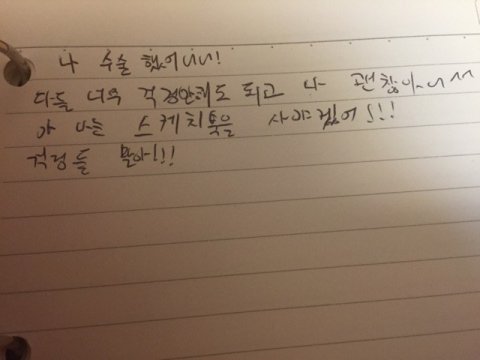 나 수술 했어니니!
다들 너무 걱정안해도 되고 나 괜찮아~니^^
아 나는 스케치북을 사야겠어!!!
걱정들 말아!!!